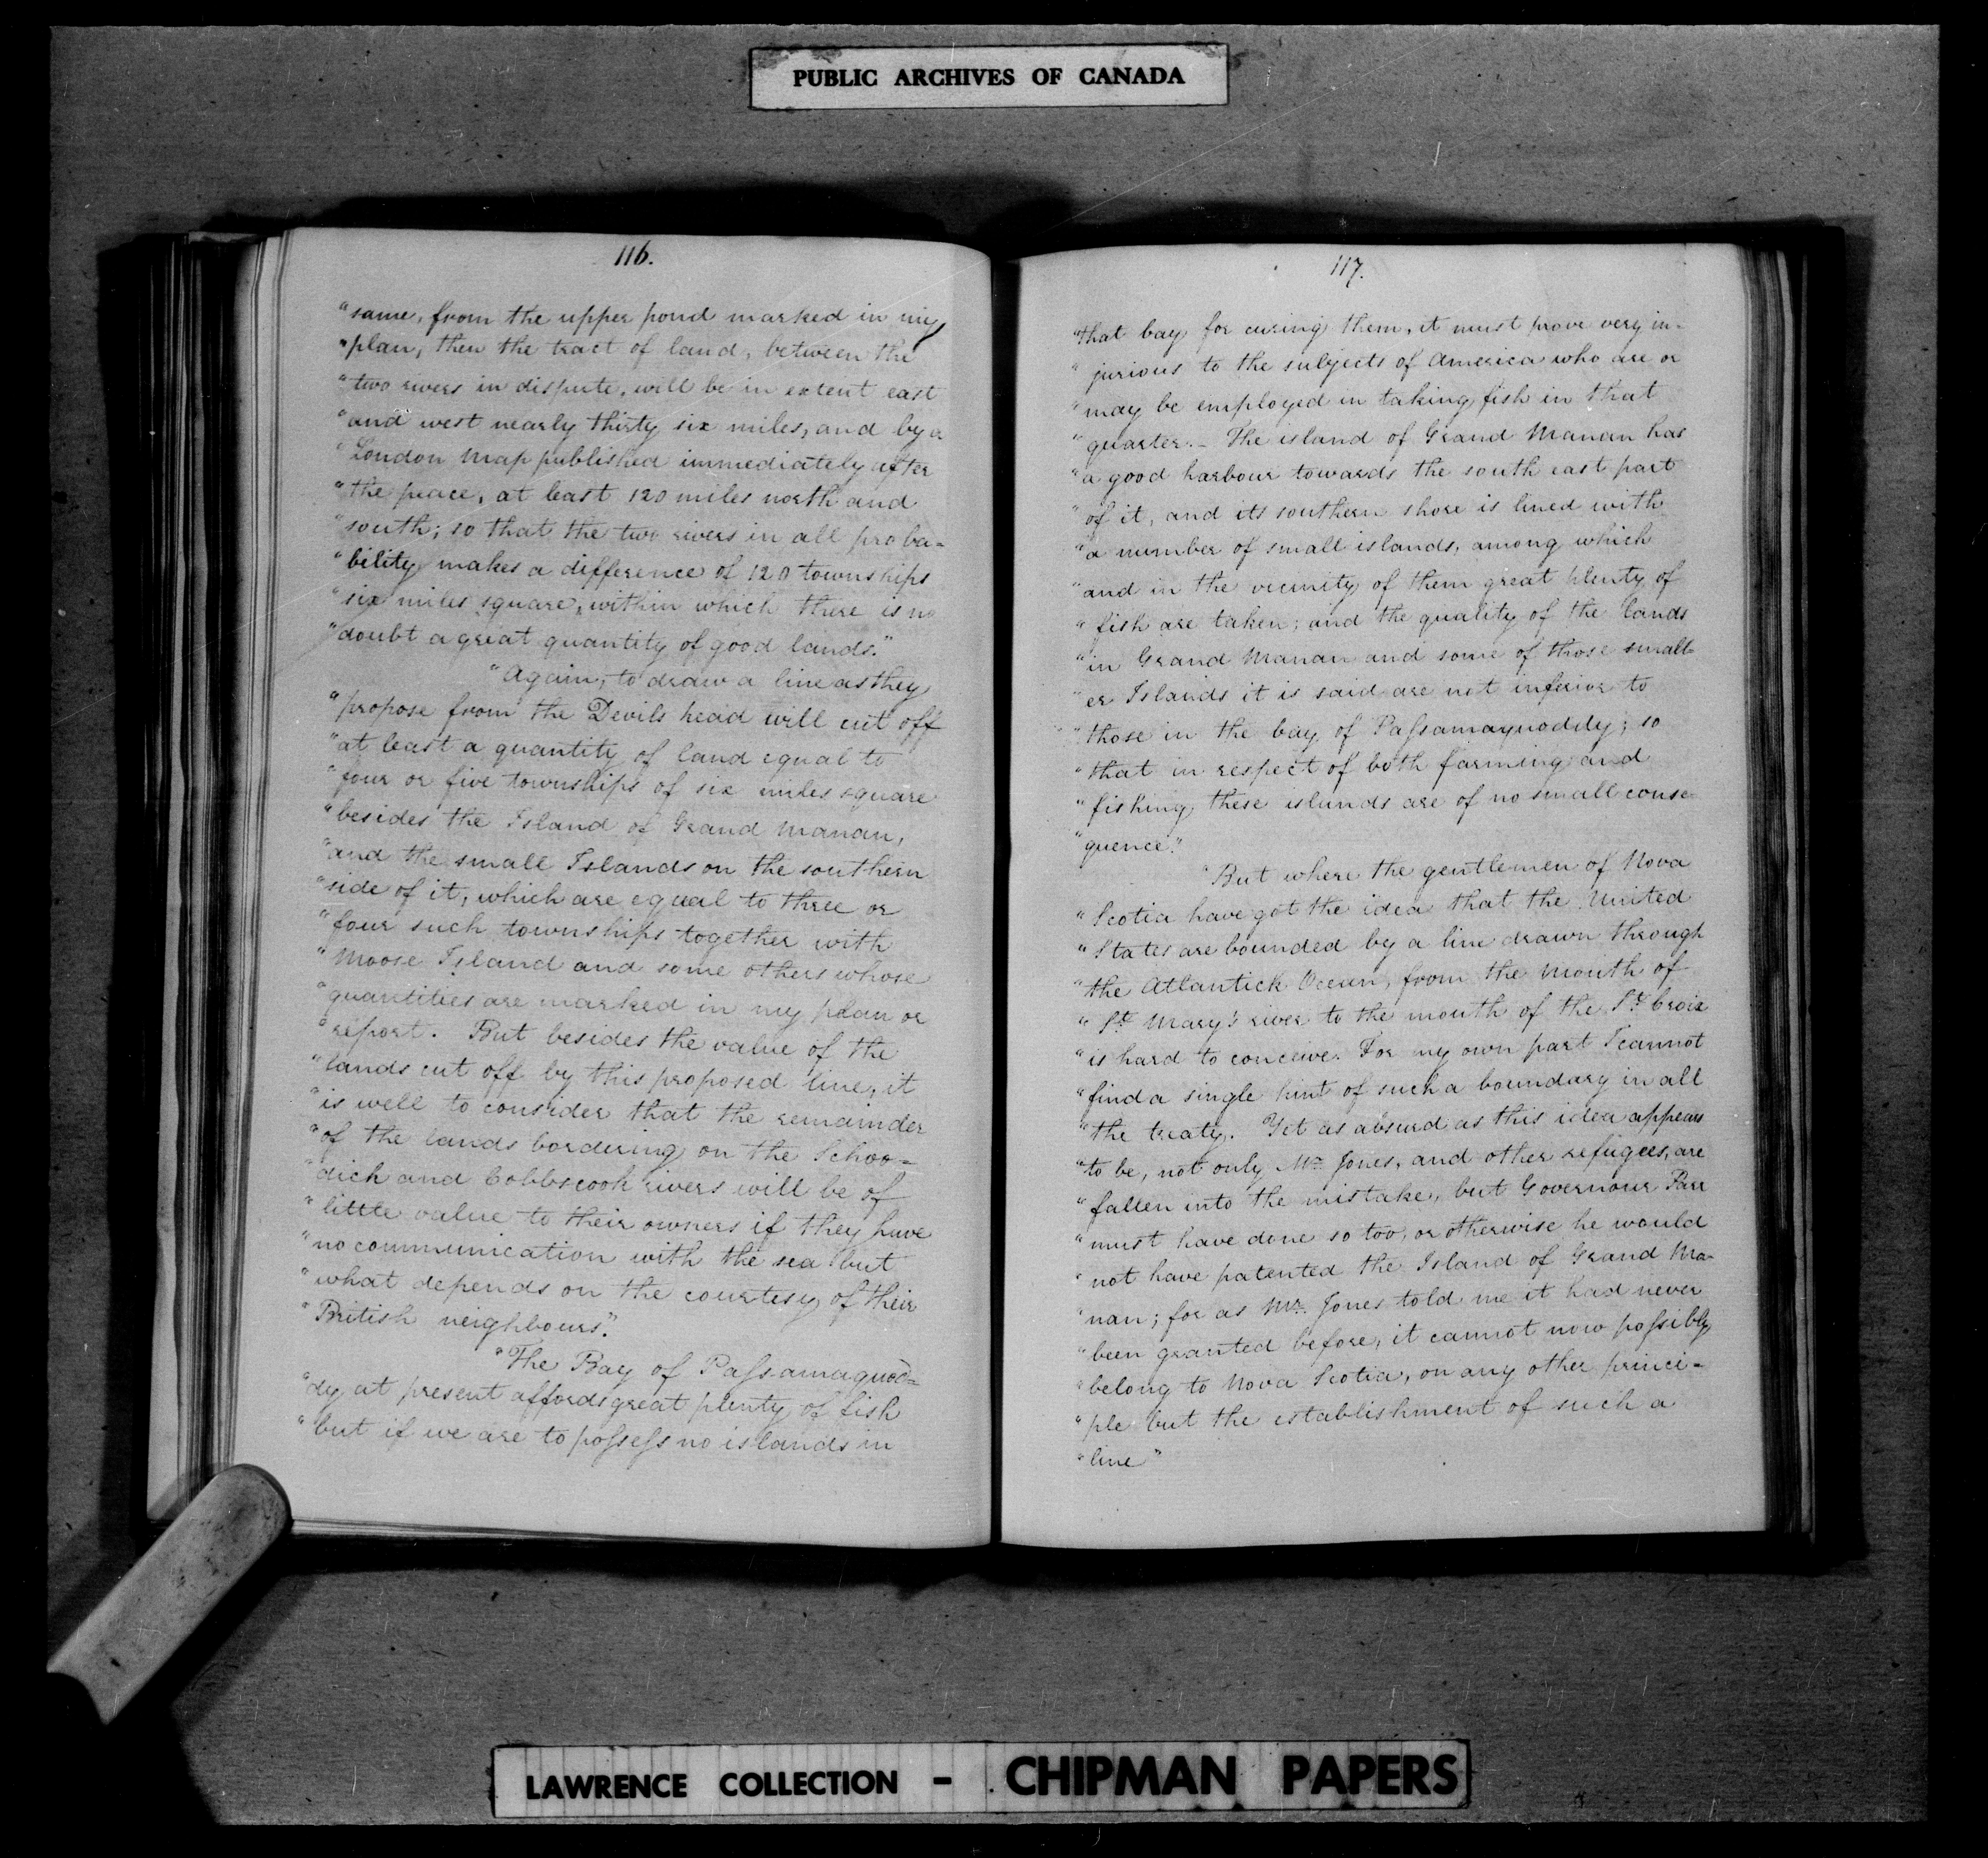 PUBLIC ARCHIVES OF CANADA
116.
"same, from the upper pond marked in my
"plan, then the tract of land, between the
"two rivers in dispute, will be in extent east
"and west nearly thirty six miles, and by a
"London Map published immediately after
"the peace, at least 120 miles north and
"south; so that the two rivers in all proba=
"bility makes a difference of 120 townships
"six miles square, within which there is no
"doubt a great quantity of good lands."
"Again, to draw a line as they
"propose from the Devils head will cut off
"at least a quantity of land equal to
"four or five townships of six miles square
"besides the Island of Grand Manan,
"and the small Islands on the southern
"side of it, which are equal to three or
"four such townships together with
"Moose Island and some others whose
"quantities are marked in my plan or
"report. But besides the value of the
"lands cut off by this proposed line, it
"is well to consider that the remainder
"of the lands bordering on the Schoo=
"dick and Cobbscook rivers will be of
"little value to their owners if they have
"no communication with the sea but
"what depends on the courtesy of their
"British neighbours."
"The Bay of Paſsamaquod=
"dy at present affords great plenty of fish
"but if we are to poſseſs no islands in
117.
"that bay for curing them, it must prove very in-
"jurious to the subjects of America who are or
"may be employed in taking fish in that
"quarter.- The island of Grand Manan has
"a good harbour towards the south east part
"of it, and its southern shore is lined with
"a number of small islands, among which
"and in the vicinity of them great plenty of
"fish are taken; and the quality of the lands
"in Grand Manan and some of those small-
"er Islands it is said are not inferior to
"those in the bay of Paſsamaquoddy; so
"that in respect of both farming and
"fishing these islands are of no small conse-
"quence."
"But where the gentlemen of Nova
"Scotia have got the idea that the United
"States are bounded by a line drawn through
"the Atlantick Ocean, from the Mouth of
"St. Mary's river to the mouth of the St. Croix
"is hard to conceive. For my own part I cannot
"find a single hint of such a boundary in all
"the treaty. Yet as absurd as this idea appears
"to be, not only Mr. Jones, and other refugees, are
"fallen into the mistake, but Governour Parr
"must have done so too, or otherwise he would
"not have patented the Island of Grand Ma-
"nan; for as Mr. Jones told me it had never
"been granted before, it cannot now poſsibly
"belong to Nova Scotia, on any other princi-
"ple but the establishment of such a
"line"
LAWRENCE COLLECTION - CHIPMAN PAPERS